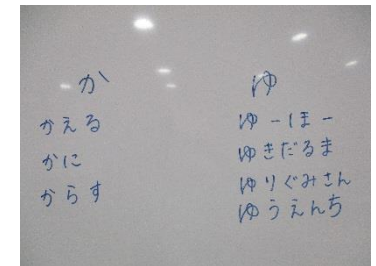 か
かえる
かに
からす
ゆ
ゆーほー
ゆきだるま
ゆりぐみさん
ゆうえんち